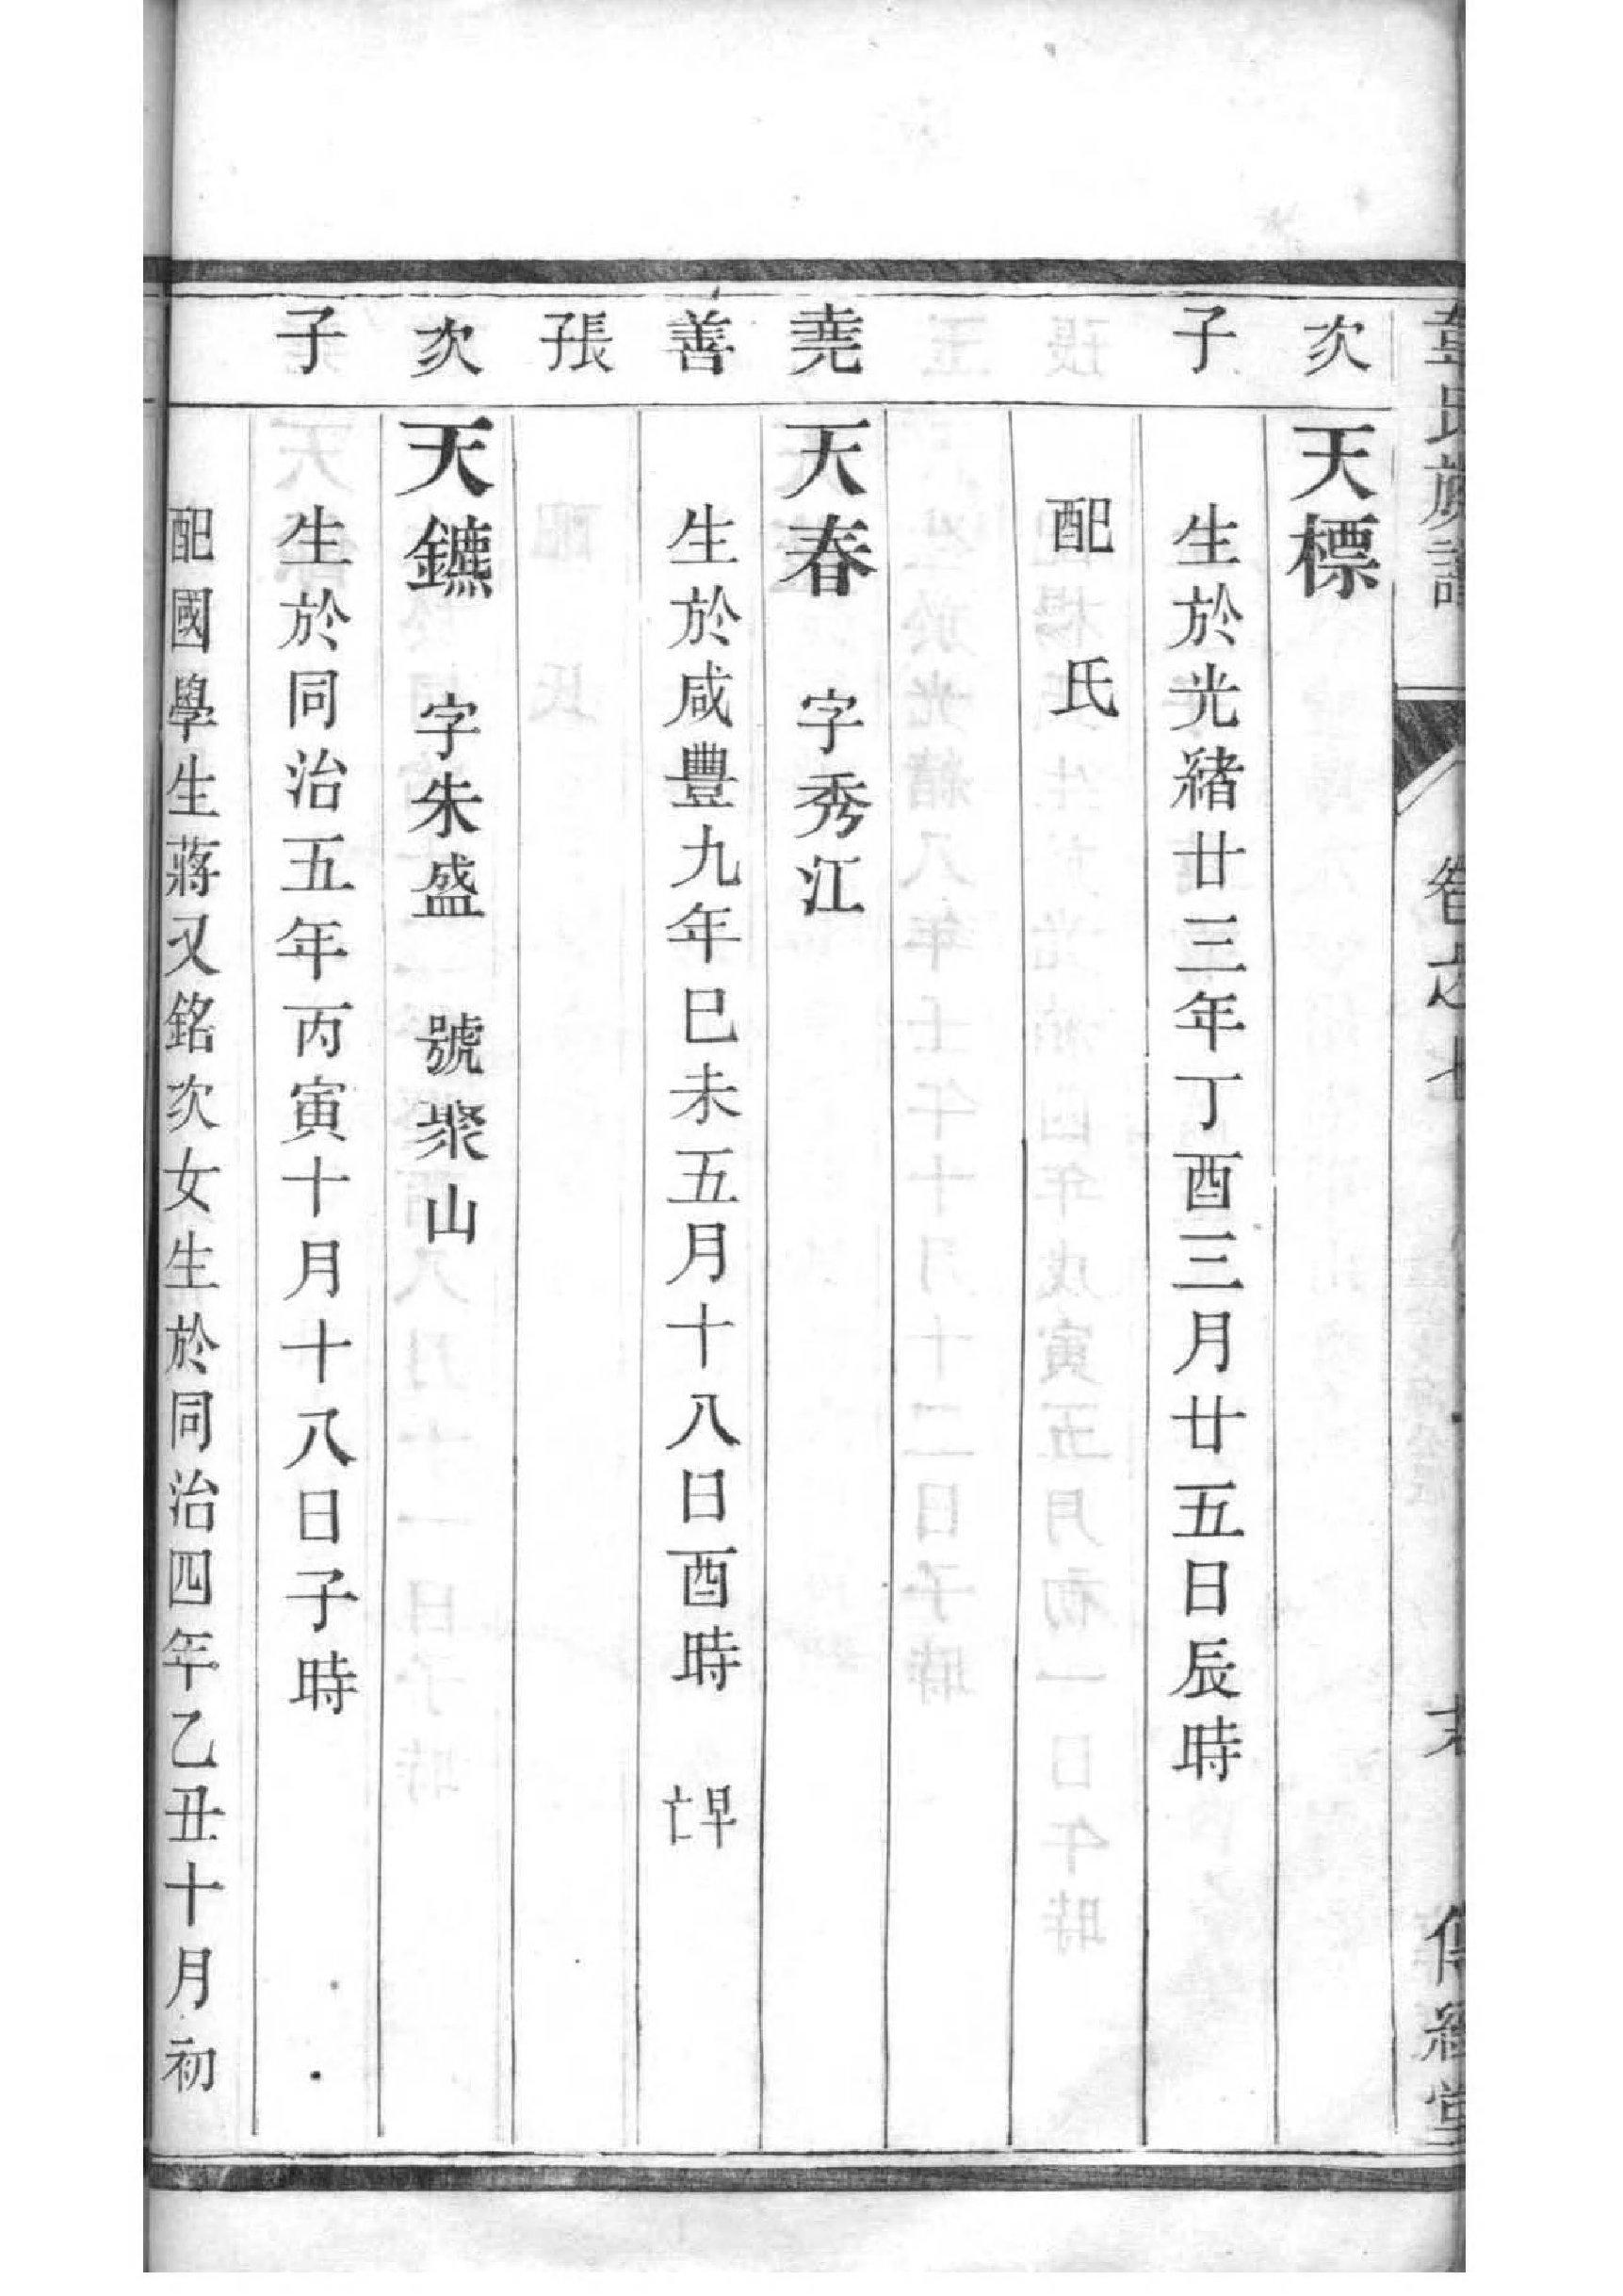 氏族譜
卷之七
傳經堂
次
天標
子
生於光緒廿三年丁酉三月廿五日辰時
配 氏
堯
天春 字秀江
善
生於咸豐九年巳未五月十八日酉時 早亡
張孫
次
天鑣 字朱盛 號聚山
子
生於同治五年丙寅十月十八日子時
配國學生蔣又銘次女生於同治四年乙丑十月初